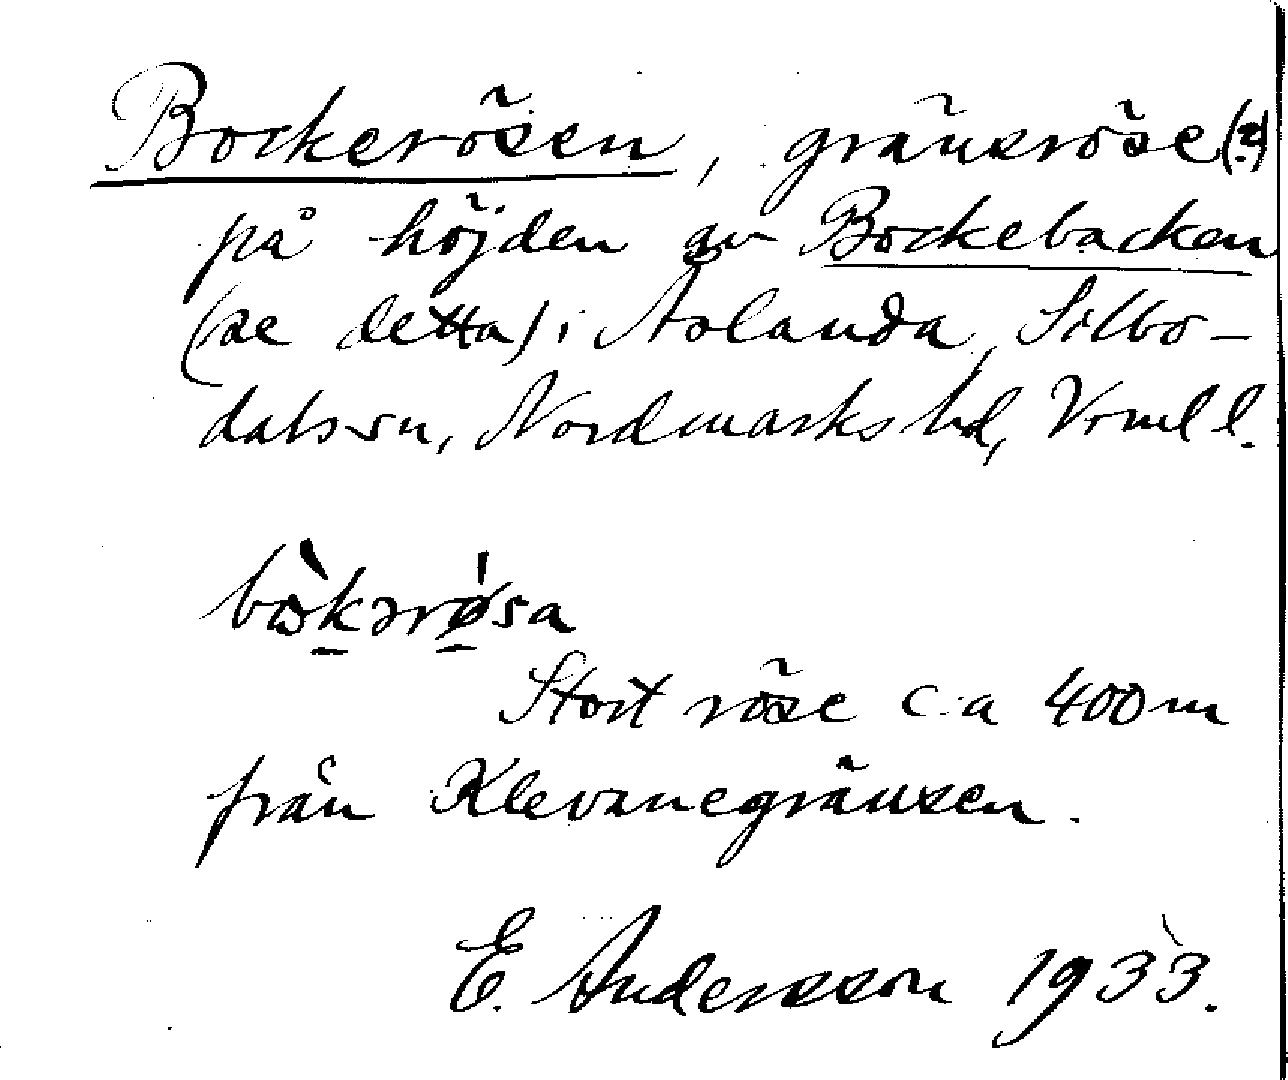 Bockerösen, gränsröse (?)
på höjden av Bockebacken
(se detta) i Åslanda, Silbo-
dals sn, Nordmarks hd, Vrml l.
bò̀kərø̀sa
Stort röse c:a 400 m
från Klevanegränsen.
E. Andersson 1933.